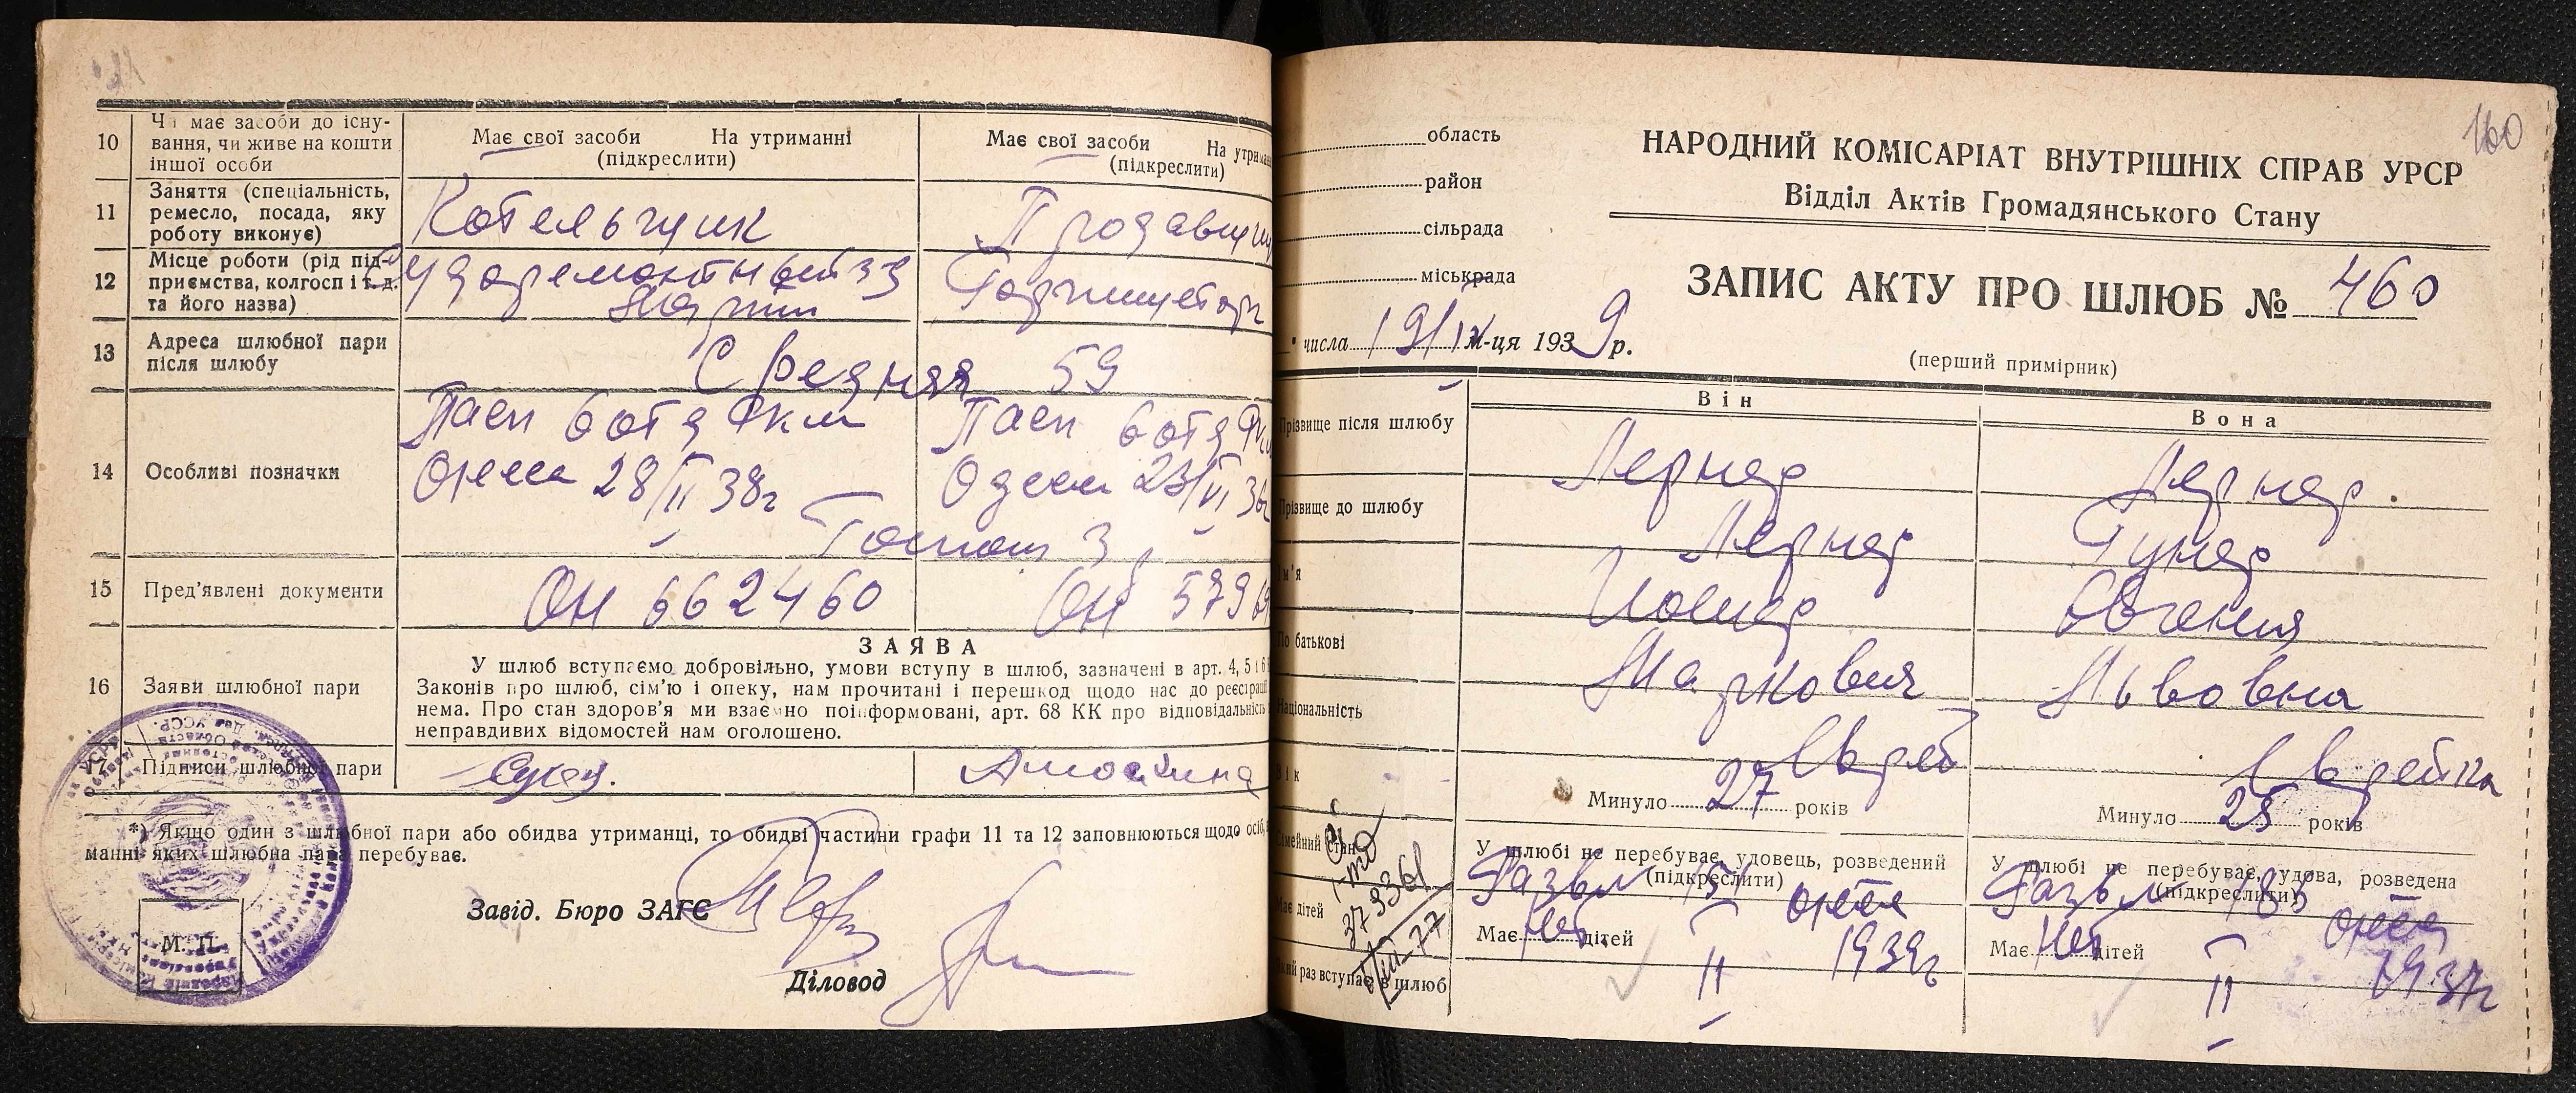 10 Чи має засоби до існування, чи живе на кошти іншої особи
Має свої засоби На утриманні
(підкреслити)
Має свої засоби На утриман
(підкреслити)
11 Заняття (спеціальність, ремесло, посада, яку роботу виконує)
Котельщик
Продавщи
12 Місце роботи (рід підприємства, колгосп і т. д. та його назва)
Судоремонтный зд
Марти
Горпищеторг
13 Адреса шлюбної пари після шлюбу
Средняя 59
14 Особливі позначки
Пасп 6 отд Ркм
Одесса 28/II 38г
Пасп 6 отд Рк
Одесса 23/VI 36г
Госпош 3 р
15 Пред'явлені документи
ОН 662460
ОН 579
ЗАЯВА
16 Заяви шлюбної пари
У шлюб вступаємо добровільно, умови вступу в шлюб, зазначені в арт. 4, 5 і 6
Законів про шлюб, сім'ю і опеку, нам прочитані і перешкод щодо нас до реєстрації
нема. Про стан здоров'я ми взаємно поінформовані, арт. 68 КК про відповідальність
неправдивих відомостей нам оголошено.
17 Підписи шлюбної пари
*) Якщо один з шлюбної пари або обидва утриманці, то обидві частини графи 11 та 12 заповнюються щодо осіб,
манні яких шлюбна пара перебуває.
Завід. Бюро ЗАГС
М. П.
Діловод
160
область
район
сільрада
міськрада
НАРОДНИЙ КОМІСАРІАТ ВНУТРІШНІХ СПРАВ УРСР
Відділ Актів Громадянського Стану
ЗАПИС АКТУ ПРО ШЛЮБ № 460
(перший примірник)
" числа 19/IV м-ця 1939р.
Він
Вона
Прізвище після шлюбу
Лернер
Лернер.
Прізвище до шлюбу
Лернер
Гунер
Ім'я
Иосиф
Евгения
По батькові
Маркович
Львовна
Національність
Еврей
Еврейка
Вік
Минуло 27 років
Минуло 25 років
Сімейний стан
У шлюбі не перебуває, удовець, розведений
(підкреслити)
Одесса
У шлюбі не перебуває, удова, розведена
(підкреслити)
Одесса
Має дітей
Має нет дітей
1939г
Має нет дітей
1937г
Який раз вступає в шлюб
II
II